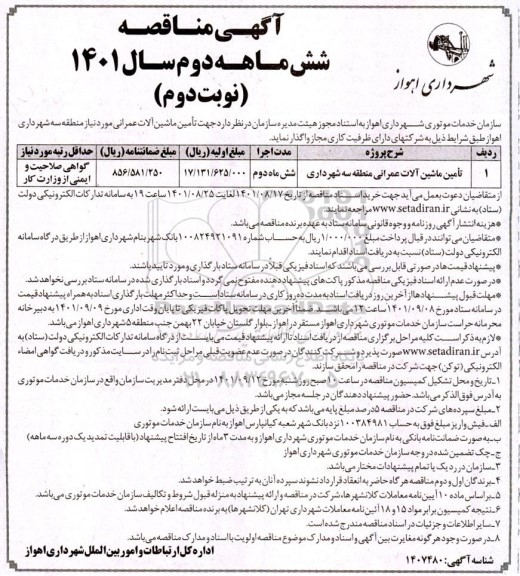 آگهی مناقصه
شش ماهه دوم سال ۱۴۰۱
(نوبت دوم)
شهرداری اهواز
سازمان خدمات موتوری شهرداری اهواز به استناد مجوز هیئت مدیره سازمان در نظر دارد جهت تأمین ماشین آلات عمرانی مورد نیاز منطقه سه شهرداری
اهواز طبق شرایط ذیل به شرکتهای دارای ظرفیت کاری مجاز واگذار نماید.
ردیف شرح پروژه مدت اجرا مبلغ اولیه (ریال) مبلغ ضمانتنامه (ریال) حداقل رتبه مورد نیاز
۱ تأمین ماشین آلات عمرانی منطقه سه شهرداری شش ماه دوم ۱۷/۱۳۱/۶۲۵/۰۰۰ ۸۵۶/۵۸۱/۲۵۰ گواهی صلاحیت و
ایمنی از وزارت کار
از متقاضیان دعوت بعمل می آید جهت خرید اسناد مناقصه از تاریخ ۱۴۰۱/۰۸/۱۷ لغایت ۱۴۰۱/۰۸/۲۵ ساعت ۱۹ به سامانه تدارکات الکترونیکی دولت
(ستاد) به نشانی www.setadiran.ir مراجعه نمایند.
*هزینه انتشار آگهی روزنامه و وجوه قانونی سامانه ستاد به عهده برنده مناقصه می‌باشد.
*متقاضیان می توانند در قبال پرداخت مبلغ ۱/۰۰۰/۰۰۰ ریال به حساب شماره ۱۰۰۸۲۴۹۲۱۰۹۱ بانک شهر بنام شهرداری اهواز از طریق درگاه سامانه
الکترونیکی دولت (ستاد) نسبت به دریافت اسناد اقدام نمایند.
*پیشنهاد قیمت‌ها در صورتی قابل بررسی می‌باشند که اسناد فیزیکی قبلاً در سامانه ستاد بارگذاری و مورد تایید باشند.
*در صورت عدم ارائه اسناد فیزیکی مناقصه مذکور پاکت های پیشنهاد دهنده مفتوح نمی گردد و اسناد بارگذاری شده در سامانه ستاد بررسی نخواهد شد.
*مهلت قبول پیشنهادها از آخرین روز دریافت اسناد به مدت ده روز کاری در سامانه ستاد است و حداکثر مهلت بارگذاری اسناد به همراه پیشنهاد قیمت
در سامانه ستاد مورخ ۱۴۰۱/۰۹/۰۸ تا ساعت ۱۲ می باشد ضمنا آخرین مهلت تحویل پاکت فیزیکی تا پایان وقت اداری مورخ ۱۴۰۱/۰۹/۰۹ به دبیرخانه
محرمانه حراست سازمان خدمات موتوری شهرداری اهواز مستقر در اهواز، بلوار گلستان خیابان ۲۲ بهمن جنب منطقه ۵ شهرداری اهواز می باشد.
*لازم به ذکر است کلیه مراحل برگزاری مناقصه از دریافت اسناد تا ارائه پیشنهاد قیمت می بایست از درگاه سامانه تدارکات الکترونیکی دولت (ستاد) به
آدرس www.setadiran.ir صورت پذیرد و شرکت کنندگان در صورت عدم عضویت قبلی مراحل ثبت نام را در سایت مذکور و دریافت گواهی امضاء
الکترونیکی (توکن) جهت شرکت در مناقصه را محقق سازند.
۱ـ تاریخ و محل تشکیل کمیسیون مناقصه در ساعت صبح روز شنبه مورخ ۱۴۰۱/۰۹/۱۲ در محل دفتر مدیریت سازمان واقع در سازمان خدمات موتوری
به آدرس فوق الذکر می باشد. حضور پیشنهاد دهندگان در جلسه مجاز می باشد.
۲ـ مبلغ سپرده های شرکت در مناقصه ۵ درصد مبلغ پایه می باشد که به یکی از طریق ذیل می بایست ارائه شود.
الف ـ فیش واریز مبلغ فوق به حساب ۱۰۰۳۸۴۹۸۱ نزد بانک شهر شعبه کیانپارس اهواز به نام سازمان خدمات موتوری
ب ـ به صورت ضمانت نامه بانکی به نام سازمان خدمات موتوری شهرداری اهواز و به مدت ۳ ماه از تاریخ افتتاح پیشنهاد (با قابلیت تمدید یک دوره سه ماهه)
ج ـ چک تضمین شده در وجه سازمان خدمات موتوری شهرداری اهواز
۳ـ سازمان در رد یک یا تمام پیشنهادات مختار می باشد.
۴ـ برندگان اول و دوم مناقصه هر گاه حاضر به انعقاد قرارداد نشوند سپرده آنان به ترتیب ضبط خواهد شد.
۵ـ بر اساس ماده ۱۰ آیین نامه معاملات کلانشهرها، شرکت در مناقصه و ارائه پیشنهاد به منزله قبول شروط و تکالیف سازمان خدمات موتوری می باشد.
۶ـ نتیجه کمیسیون برابر مواد ۱۵ و ۱۸ آئین نامه معاملات شهرداری تهران (کلانشهرها) به برنده مناقصه اعلام خواهد شد.
۷ـ سایر اطلاعات و جزئیات در اسناد مناقصه مندرج شده است.
۸ـ در صورت وجود هر گونه مغایرت بین آگهی و اسناد و مدارک موضوع مناقصه اولویت با اسناد و مدارک مناقصه می باشد.
اداره کل ارتباطات و امور بین الملل شهرداری اهواز
شناسه آگهی: ۱۴۰۷۴۸۰